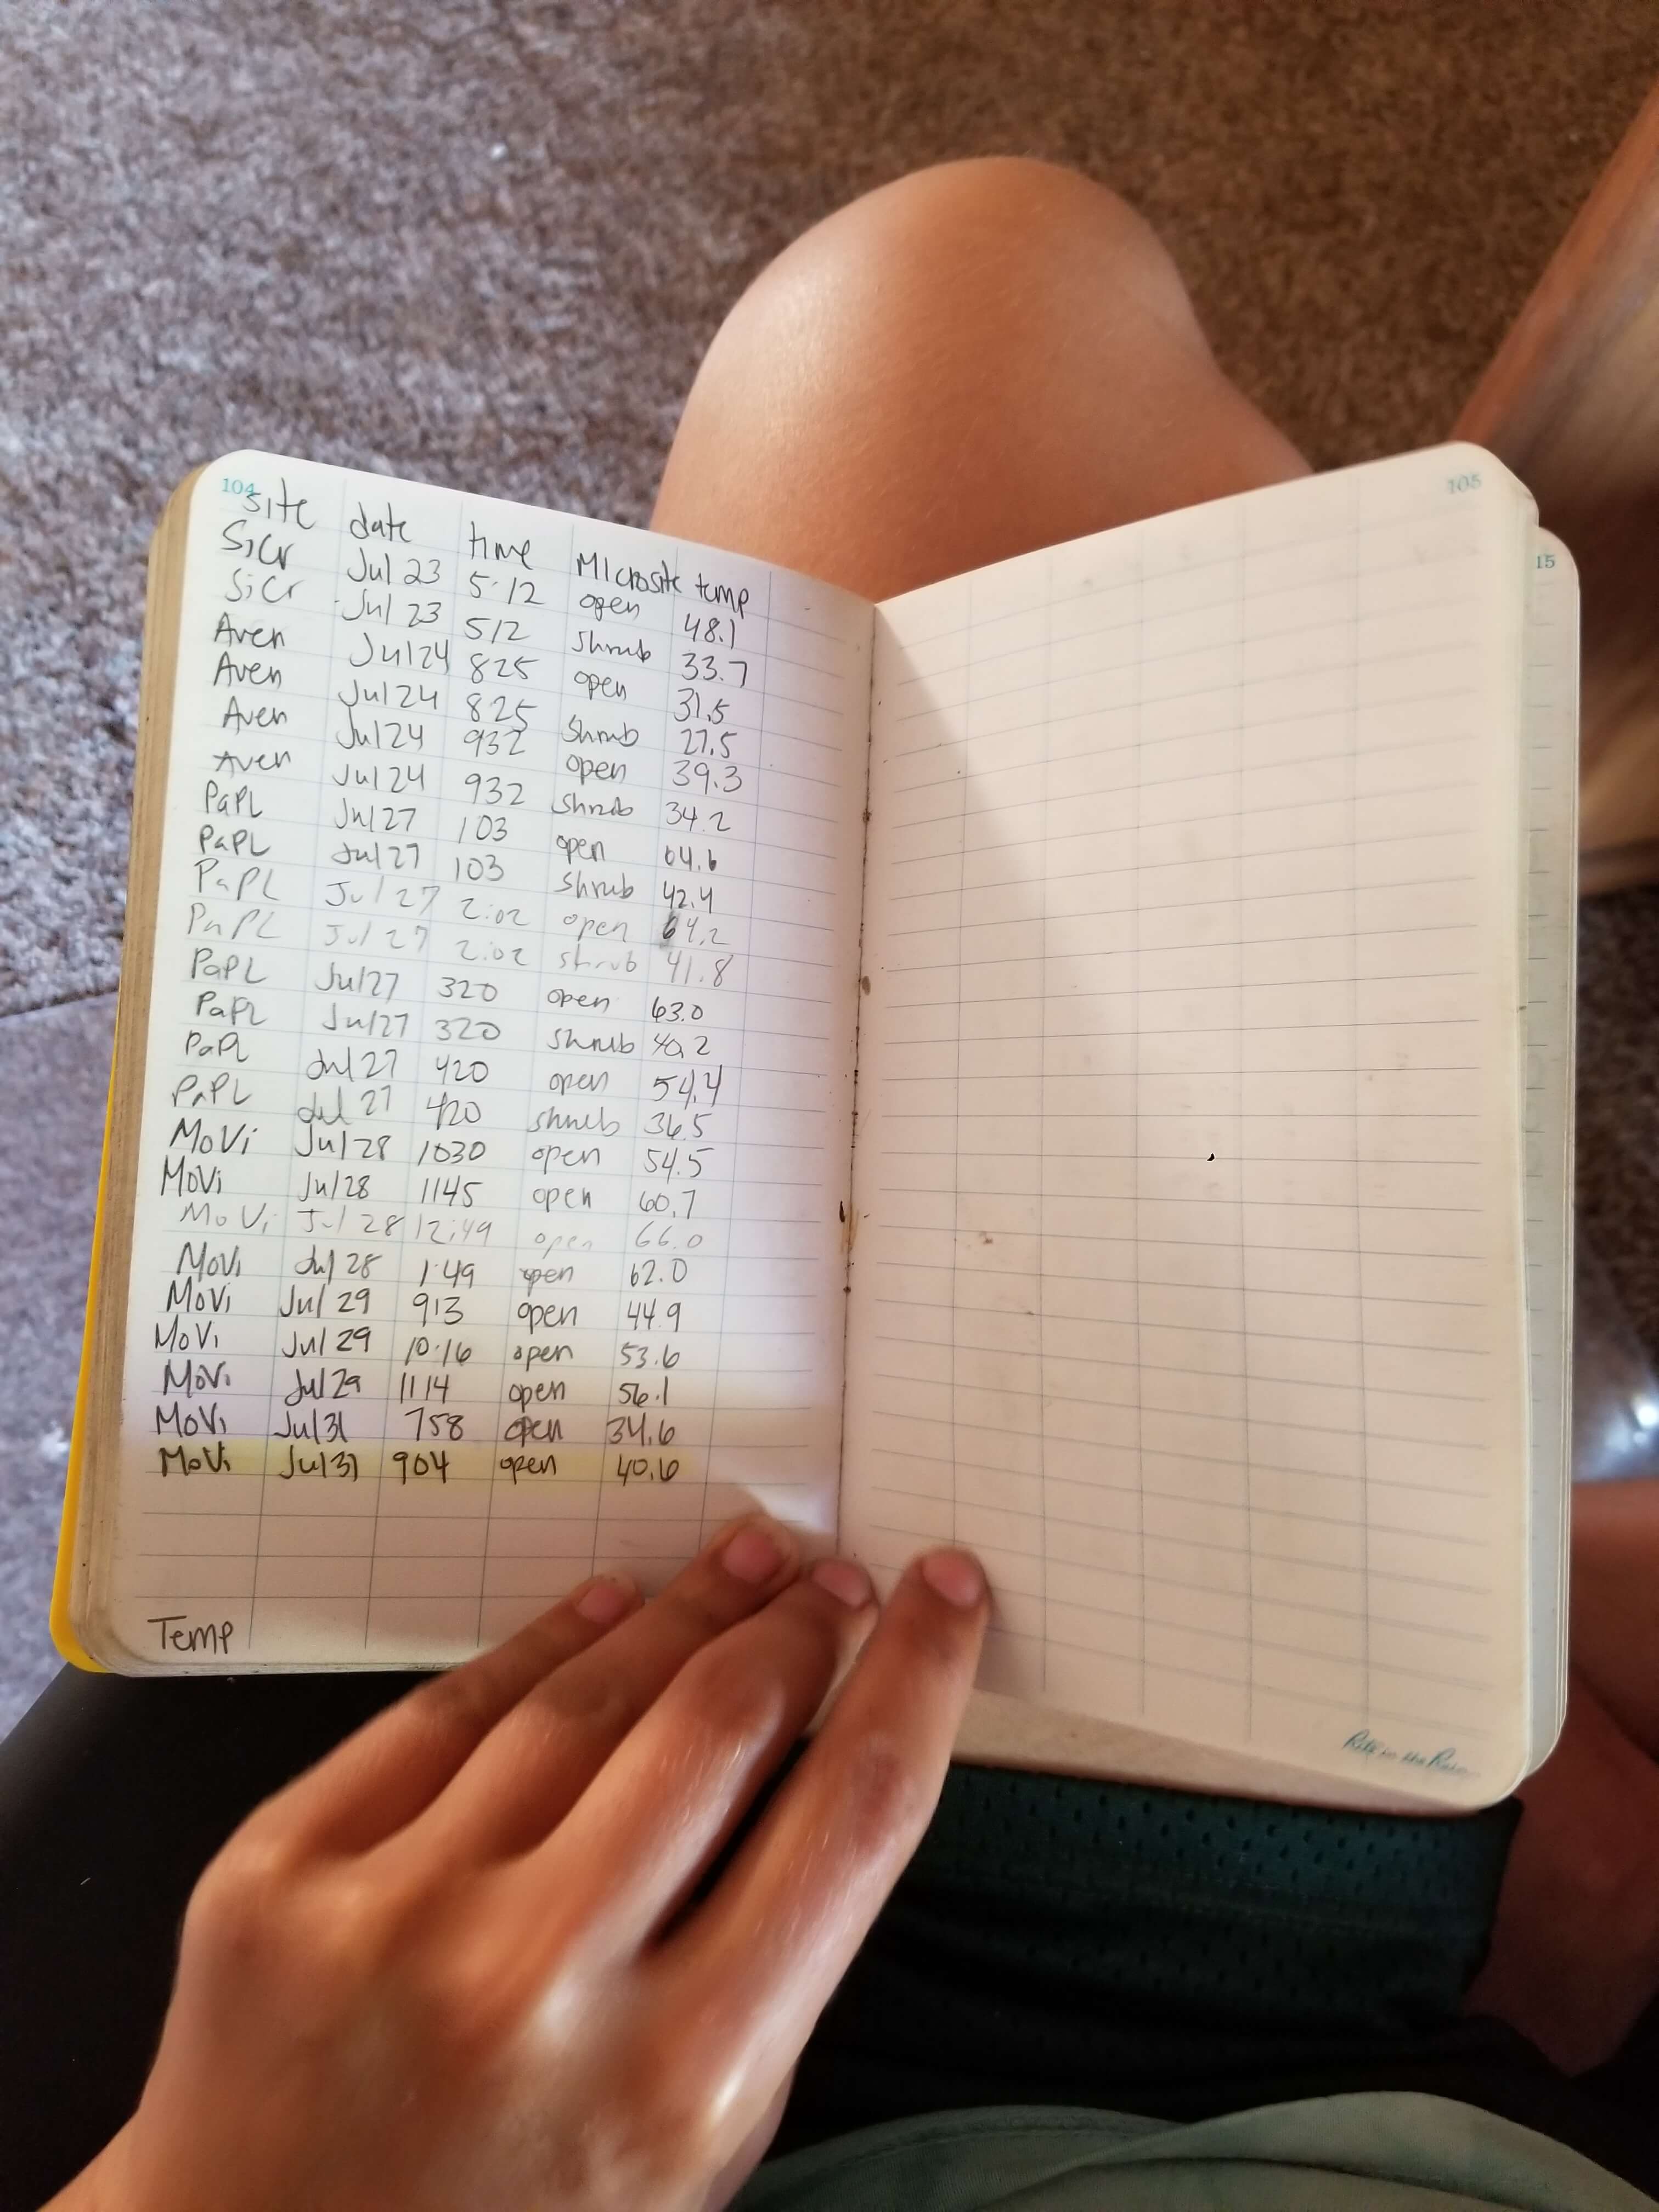 104
Site date time Microsite temp
SiCr Jul 23 5:12 open 48.1
SiCr Jul 23 512 shrub 33.7
Aven Jul 24 825 open 31.5
Aven Jul 24 825 shrub 27.5
Aven Jul 24 932 open 39.3
Aven Jul 24 932 shrub 34.2
PaPL Jul 27 103 open 64.6
PaPL Jul 27 103 shrub 42.4
PaPL Jul 27 2:02 open 64.2
PaPL Jul 27 2:02 shrub 41.8
PaPL Jul 27 320 open 63.0
PaPL Jul 27 320 shrub 40.2
PaPL Jul 27 420 open 54.4
PaPL Jul 27 420 shrub 36.5
MoVi Jul 28 1030 open 54.5
MoVi Jul 28 1145 open 60.7
MoVi Jul 28 12:49 open 66.0
MoVi Jul 28 1:49 open 62.0
MoVi Jul 29 913 open 44.9
MoVi Jul 29 10:16 open 53.6
MoVi Jul 29 1114 open 56.1
MoVi Jul 31 758 open 34.6
MoVi Jul 31 904 open 40.6
Temp
105
15
Rite in the Rain